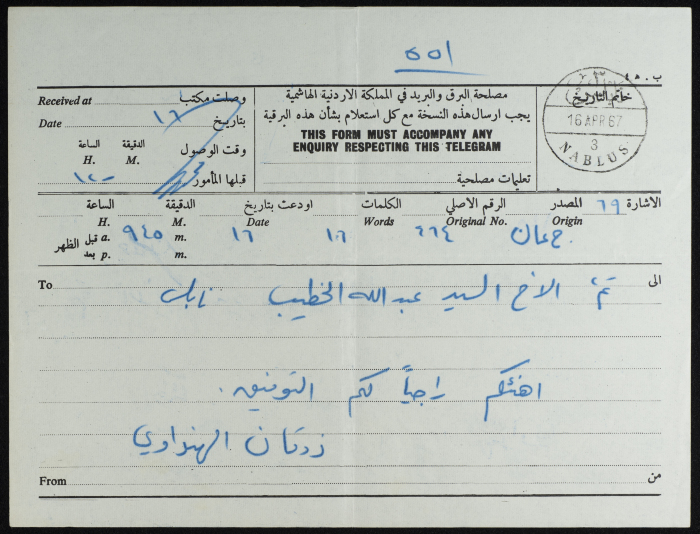 ٥٥١
ب. ٤٥
مصلحة البرق والبريد في المملكة الاردنية الهاشمية
يجب ارسال هذه النسخة مع كل استعلام بشأن هذه البرقية
THIS FORM MUST ACCOMPANY ANY
ENQUIRY RESPECTING THIS TELEGRAM
تعليمات مصلحية
Received at وصلت مكتب
Date بتاريخ ١٦
الساعة الدقيقة وقت الوصول
H. M.
قبلها المأمور
خاتم التاريخ
16 APR 67
3
NABLUS
الاشارة ٦٩ المصدر الرقم الاصلي الكلمات اودعت بتاريخ الدقيقة الساعة
Origin Original No. Words Date M. H.
عمان ٤٦٤ ١٦ ١٦ ٩٤٥
قبل a. m.
الظهر
بعد p. m.
To الى
الاخ السيد عبدالله الخطيب نابلس
اهنئكم راجياً لكم التوفيق.
ذوقان الهنداوي
From من